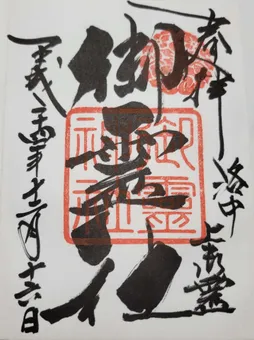 奉拝 洛中
上御霊
御霊社
御霊神社
平成二十四年十二月十六日